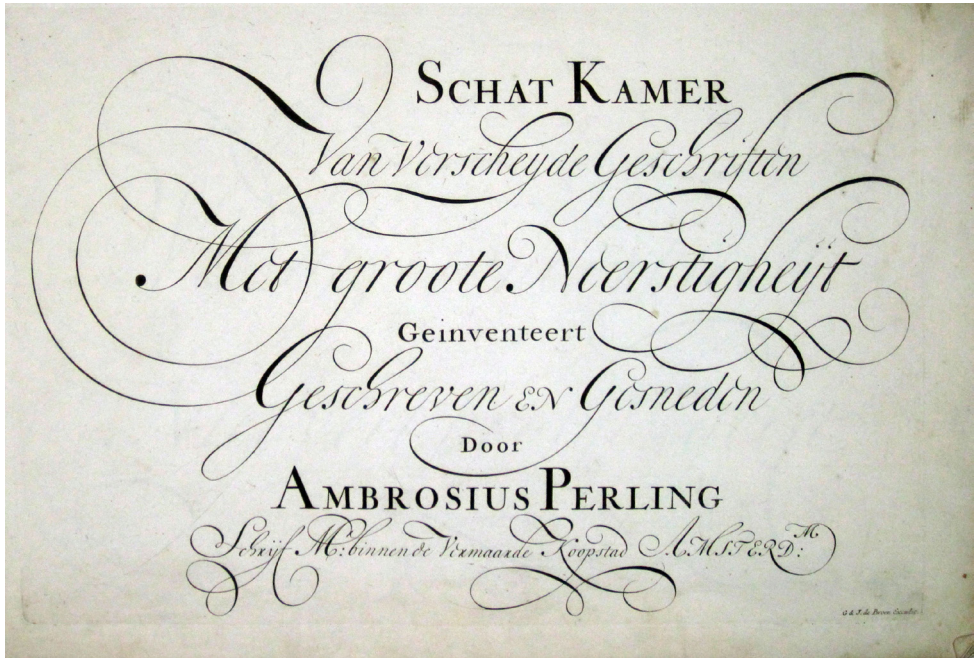 SCHAT KAMER
Van Verscheyde Geschriften
Met groote Neerstigheÿt
Geinventeert
Geschreven EN Gesneden
Door
AMBROSIUS PERLING
Schrijf M: binnen de Vermaarde Koopstad AMSTERD:M
G. & J. de Broen